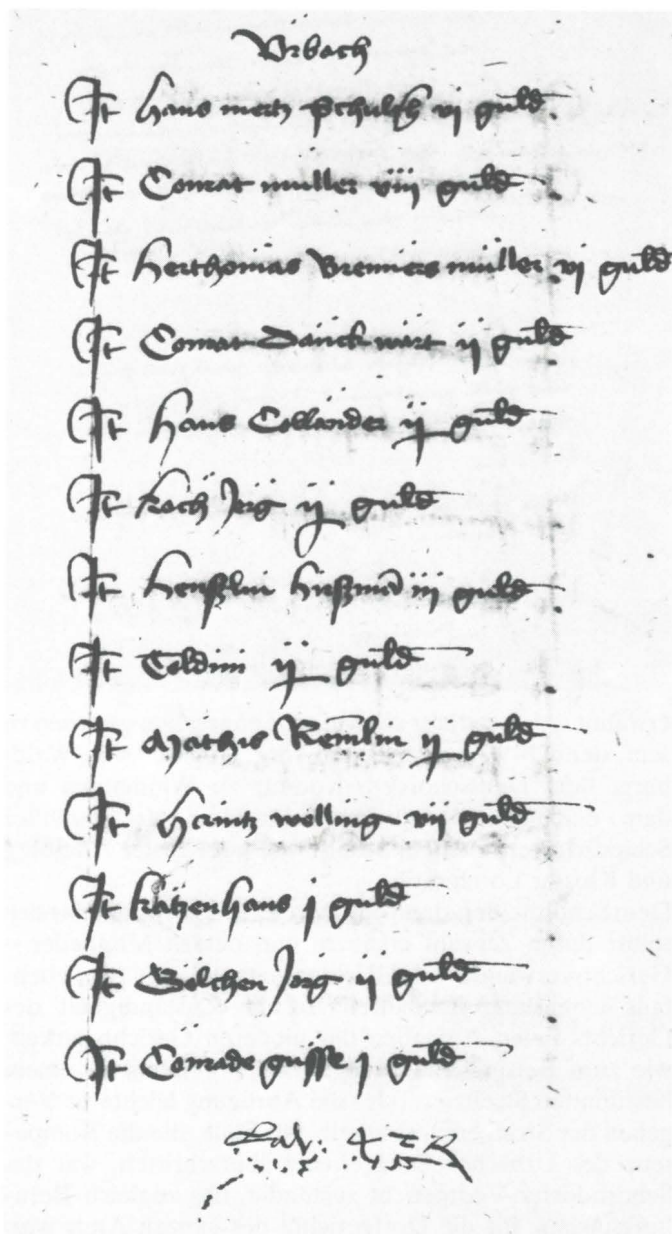 Vrbach
It Hans metz schulth vj guld
It Conrat muller viij guld
It Herthomas Brenners muller vj guld
It Conrat Danckwart ij guld
It Hans Collander ij guld
It Koch Jerg ij guld
It Henßlin iij guld
It ij guld
It Mathis ij guld
It Heintz welling vij guld
It Katzenhans j guld
It Jerg ij guld
It Conrade gusse j guld